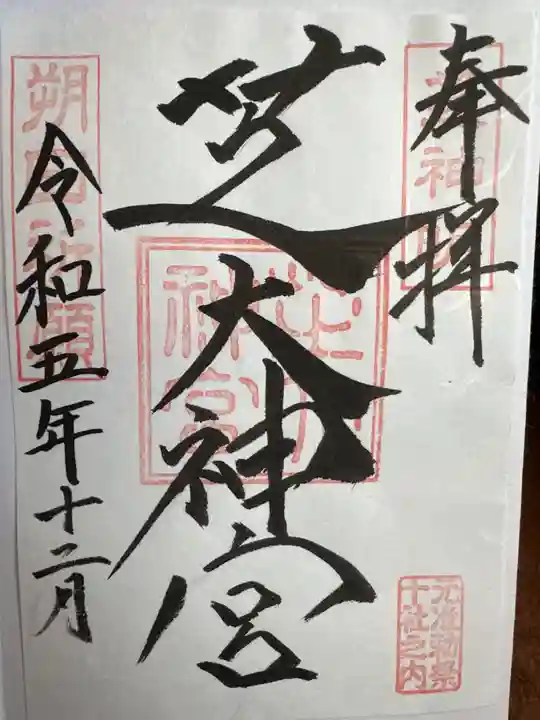 奉拝
芝大神宮
芝大神宮
令和五年十二月
朔日祈願
元准勅祭
十社之内